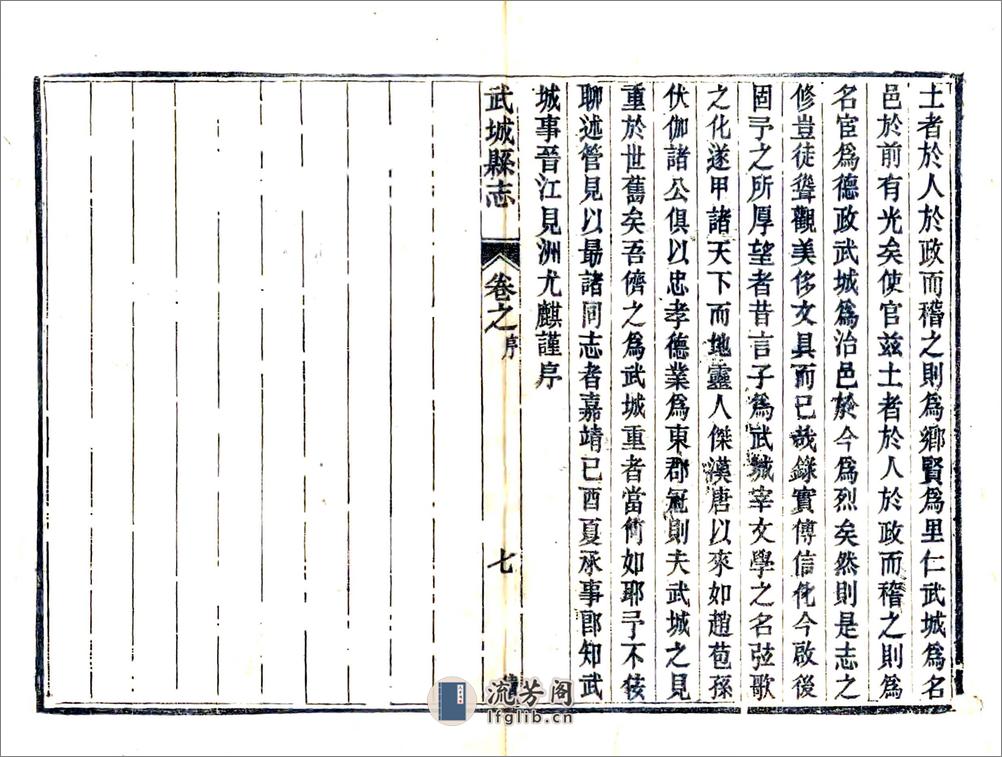 土者於人於政而稽之則為鄉賢為里仁武城為名
邑於前有光矣使官兹土者於人於政而稽之則為
名宦為德政武城為治邑於今為烈矣然則是志之
修豈徒聳觀美侈文具而已哉錄實傳信化今啟後
固予之所厚望者昔言子為武城宰文學之名弦歌
之化遂甲諸天下而地靈人傑漢唐以來如趙苞孫
伏伽諸公俱以忠孝德業為東郡冠則夫武城之見
重於世舊矣吾儕之為武城重者當何如耶予不佞
聊述管見以勗諸同志者嘉靖己酉夏承事郎知武
城事晉江見洲尤麒謹序
武城縣志
卷之序
七
流芳阁
lfglib.cn